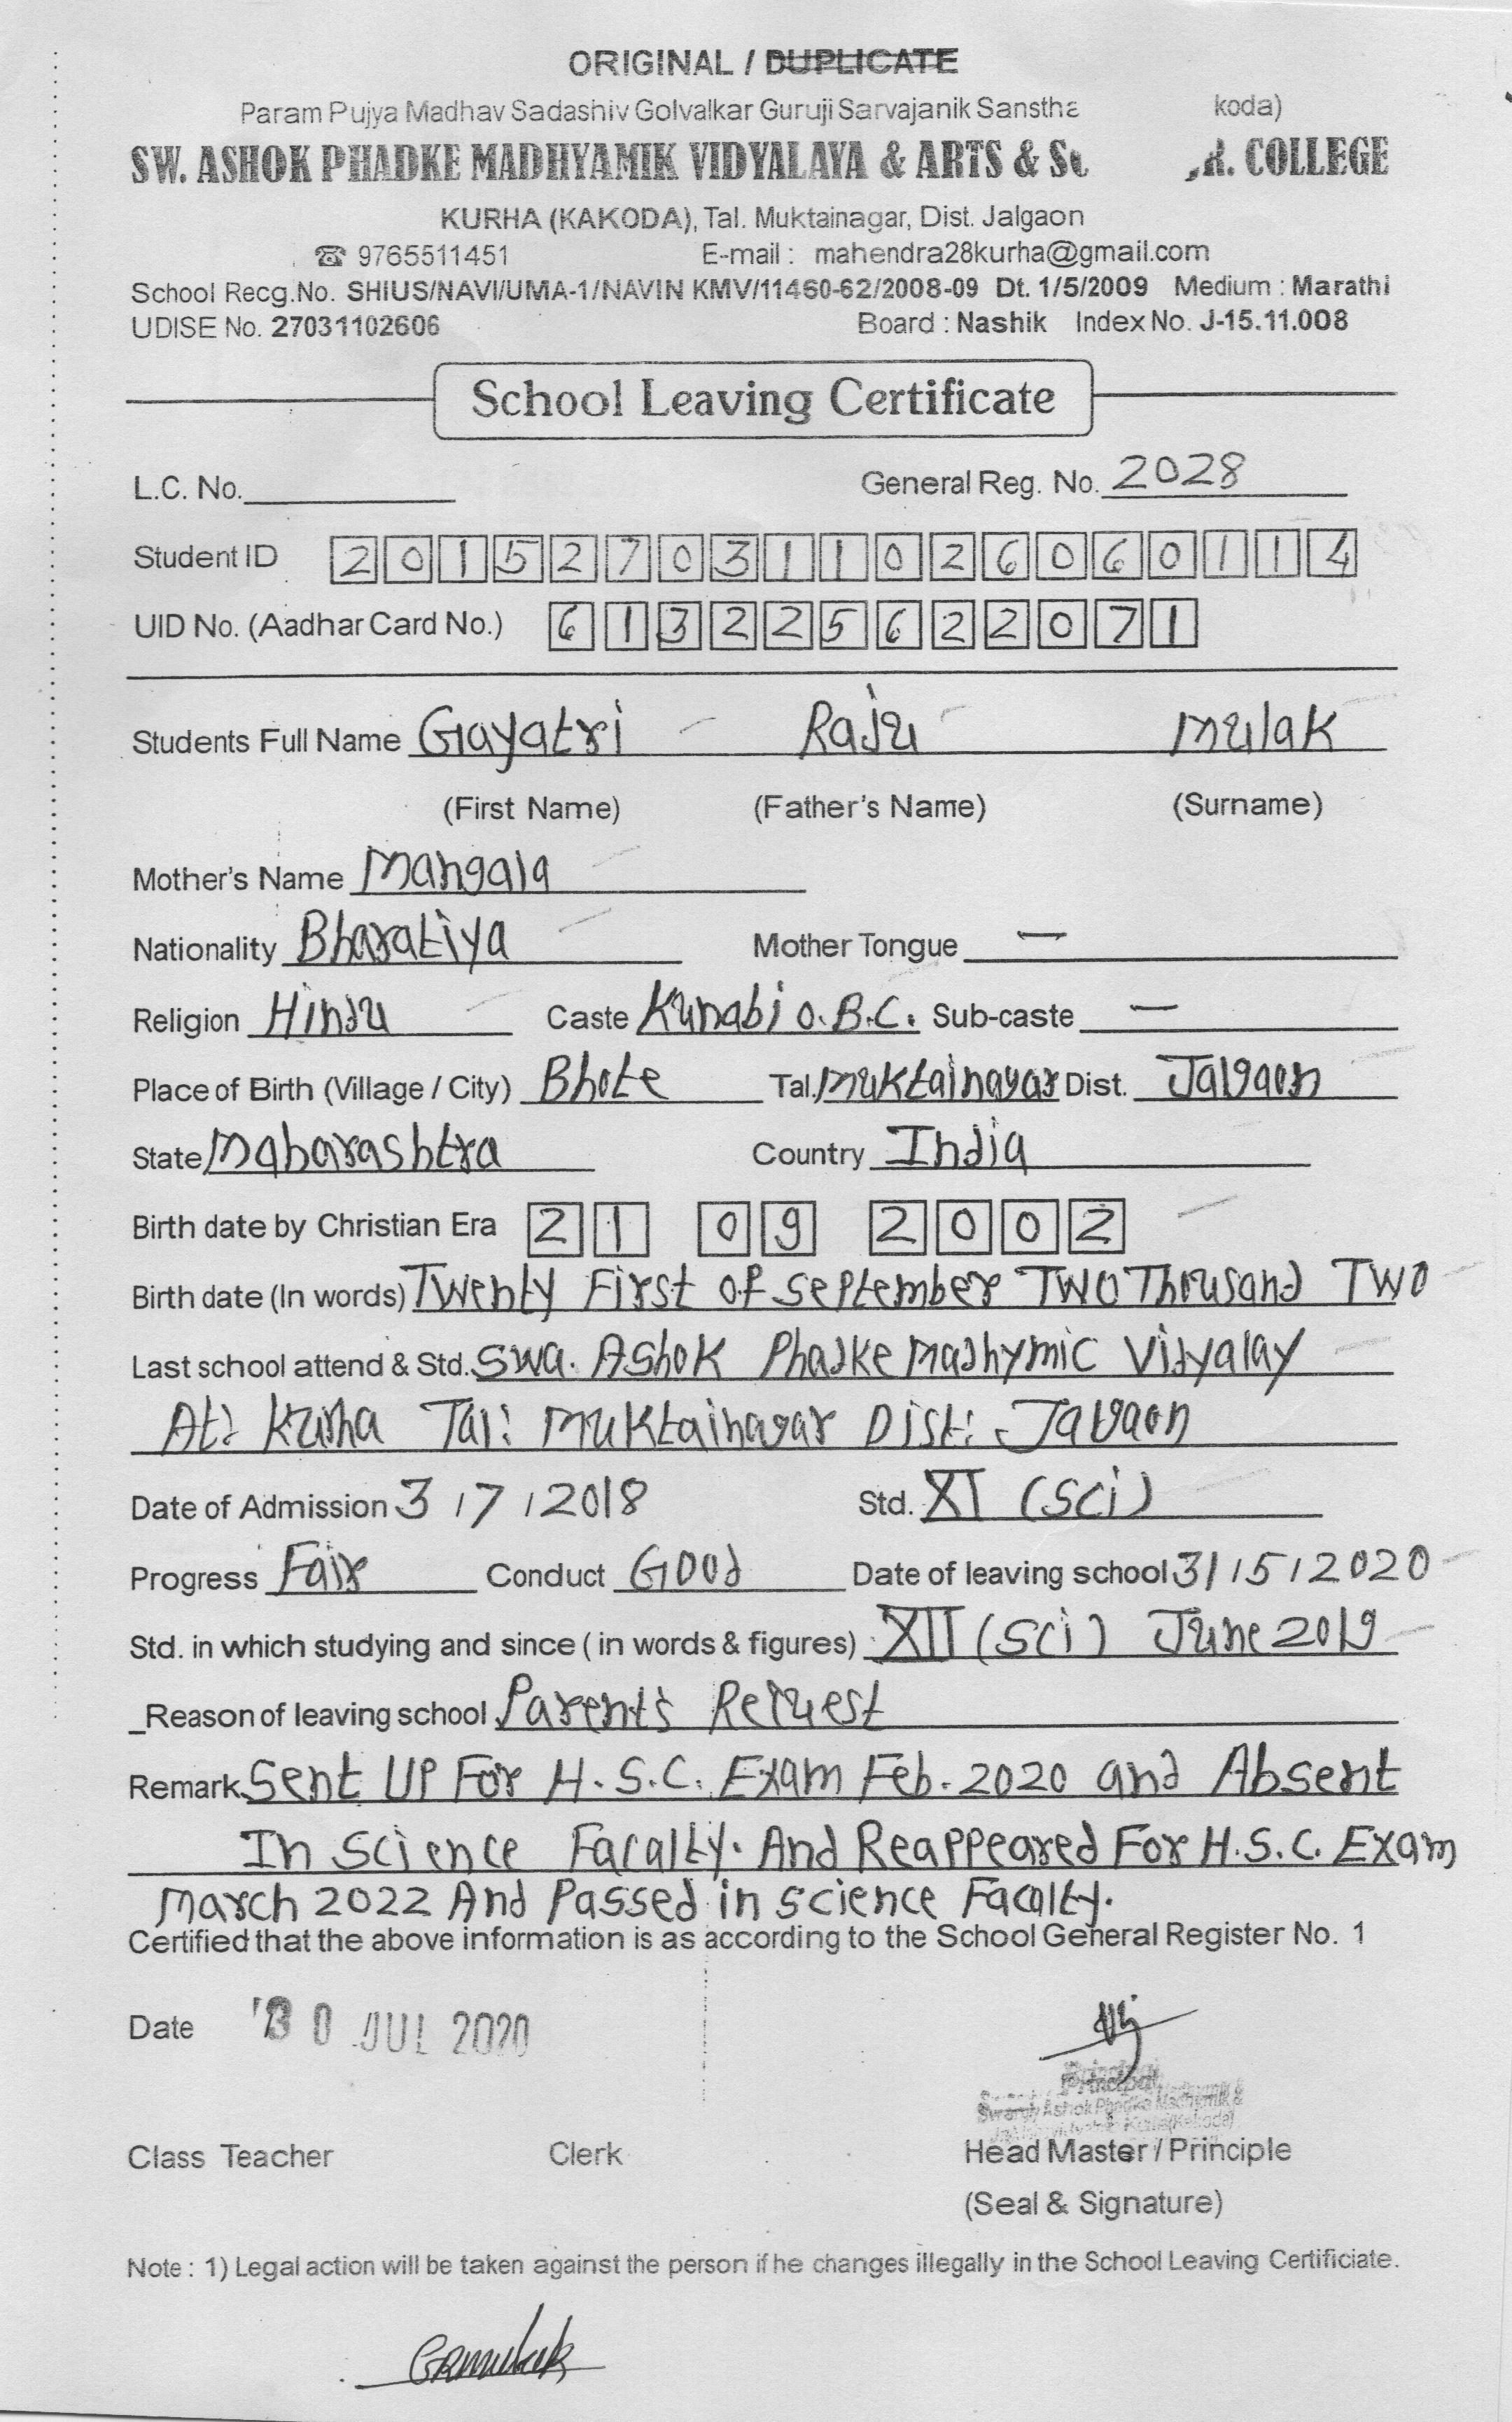 ORIGINAL / DUPLICATE
Param Pujya Madhav Sadashiv Golvalkar Guruji Sarvajanik Sanstha koda)
SW. ASHOK PHADKE MADHYAMIK VIDYALAYA & ARTS & R. COLLEGE
KURHA (KAKODA), Tal. Muktainagar, Dist. Jalgaon
☎ 9765511451 E-mail : mahendra28kurha@gmail.com
School Recg.No. SHIUS/NAVI/UMA-1/NAVIN KMV/11460-62/2008-09 Dt. 1/5/2009 Medium : Marathi
UDISE No. 27031102606 Board : Nashik Index No. J-15.11.008
School Leaving Certificate
L.C. No. General Reg. No. 2028
Student ID 2015270311026060114
UID No. (Aadhar Card No.) 613225622071
Students Full Name Gayatri Raju Mulak
(First Name) (Father's Name) (Surname)
Mother's Name Mangala
Nationality Bharatiya Mother Tongue —
Religion Hindu Caste Kunabi O.B.C. Sub-caste —
Place of Birth (Village / City) Bhote Tal. Muktainagar Dist. Jalgaon
State Maharashtra Country India
Birth date by Christian Era 21 09 2002
Birth date (In words) Twenty First of September Two Thousand Two
Last school attend & Std. Swa. Ashok Phadke Madhymic Vidyalay
At: Kurha Tal: Muktainagar Dist: Jalgaon
Date of Admission 3 / 7 / 2018 Std. XI (Sci)
Progress Fair Conduct Good Date of leaving school 31/5/2020
Std. in which studying and since ( in words & figures) XII (Sci) June 2019
Reason of leaving school Parent's Request
Remark Sent UP For H.S.C. Exam Feb. 2020 and Absent
In Science Facalty. And Reappeared For H.S.C. Exam
March 2022 And Passed in Science Facalty.
Certified that the above information is as according to the School General Register No. 1
Date 30 JUL 2020
Principal
Class Teacher Clerk Head Master / Principle
(Seal & Signature)
Note : 1) Legal action will be taken against the person if he changes illegally in the School Leaving Certificiate.
GRMulak